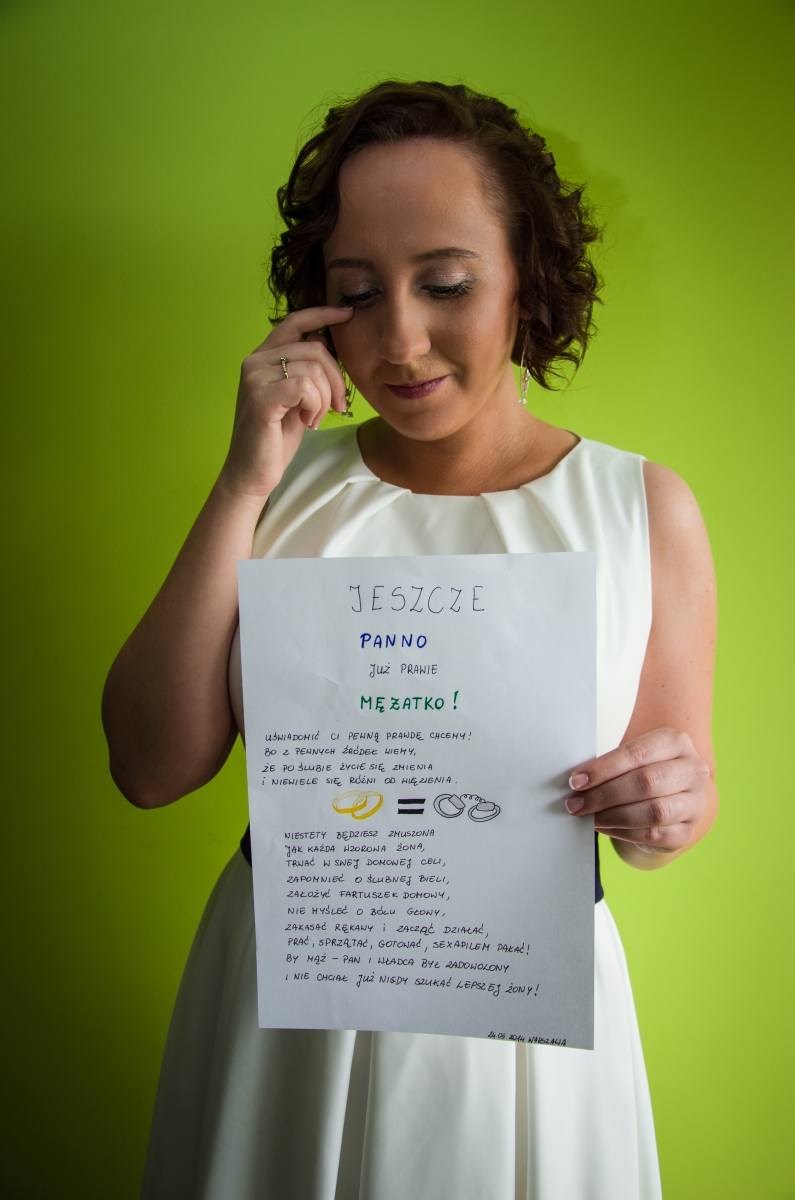 JESZCZE
PANNO
JUŻ PRAWIE
MĘŻATKO!
UŚWIADOMIĆ CI PEWNĄ PRAWDĘ CHCEMY!
BO Z PEWNYCH ŹRÓDEŁ WIEMY,
ŻE PO ŚLUBIE ŻYCIE SIĘ ZMIENIA
I NIEWIELE SIĘ RÓŻNI OD WIĘZIENIA.
=
NIESTETY BĘDZIESZ ZMUSZONA
JAK KAŻDA WZOROWA ŻONA,
TRWAĆ W SWEJ DOMOWEJ CELI,
ZAPOMNIEĆ O ŚLUBNEJ BIELI,
ZAŁOŻYĆ FARTUSZEK DOMOWY,
NIE MYŚLEĆ O BÓLU GŁOWY,
ZAKASAĆ RĘKAWY I ZACZĄĆ DZIAŁAĆ,
PRAĆ, SPRZĄTAĆ, GOTOWAĆ, SEXAPILEM PAŁAĆ!
BY MĄŻ – PAN I WŁADCA BYŁ ZADOWOLONY
I NIE CHCIAŁ JUŻ NIGDY SZUKAĆ LEPSZEJ ŻONY!
24.05.2014 WARSZAWA